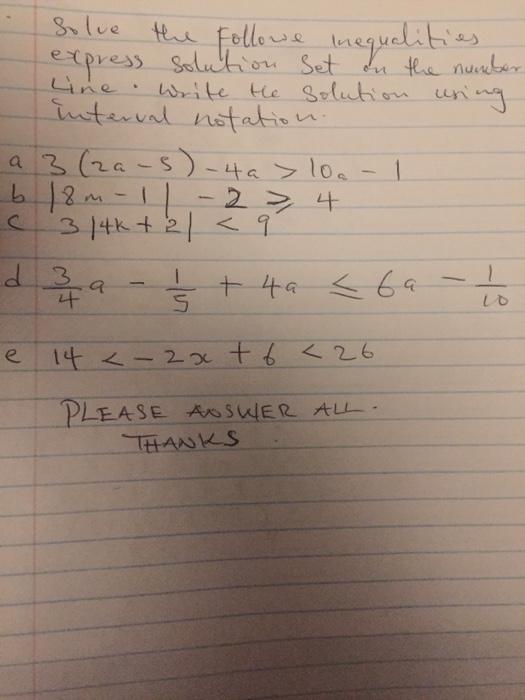 Solve the Followe inequalities
express solution Set on the number
Line. write the solution using
interval notation.
a 3(2a-5)-4a > 10a - 1
b |8m-1| - 2 ≥ 4
c 3|4k+2| < 9
d 3/4 a - 1/5 + 4a ≤ 6a - 1/10
e 14 < -2x + 6 < 26
PLEASE ANSWER ALL.
THANKS.